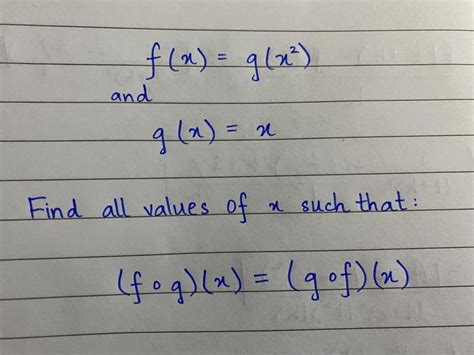 f(x) = g(x²)
and
g(x) = x
Find all values of x such that:
(f∘g)(x) = (g∘f)(x)